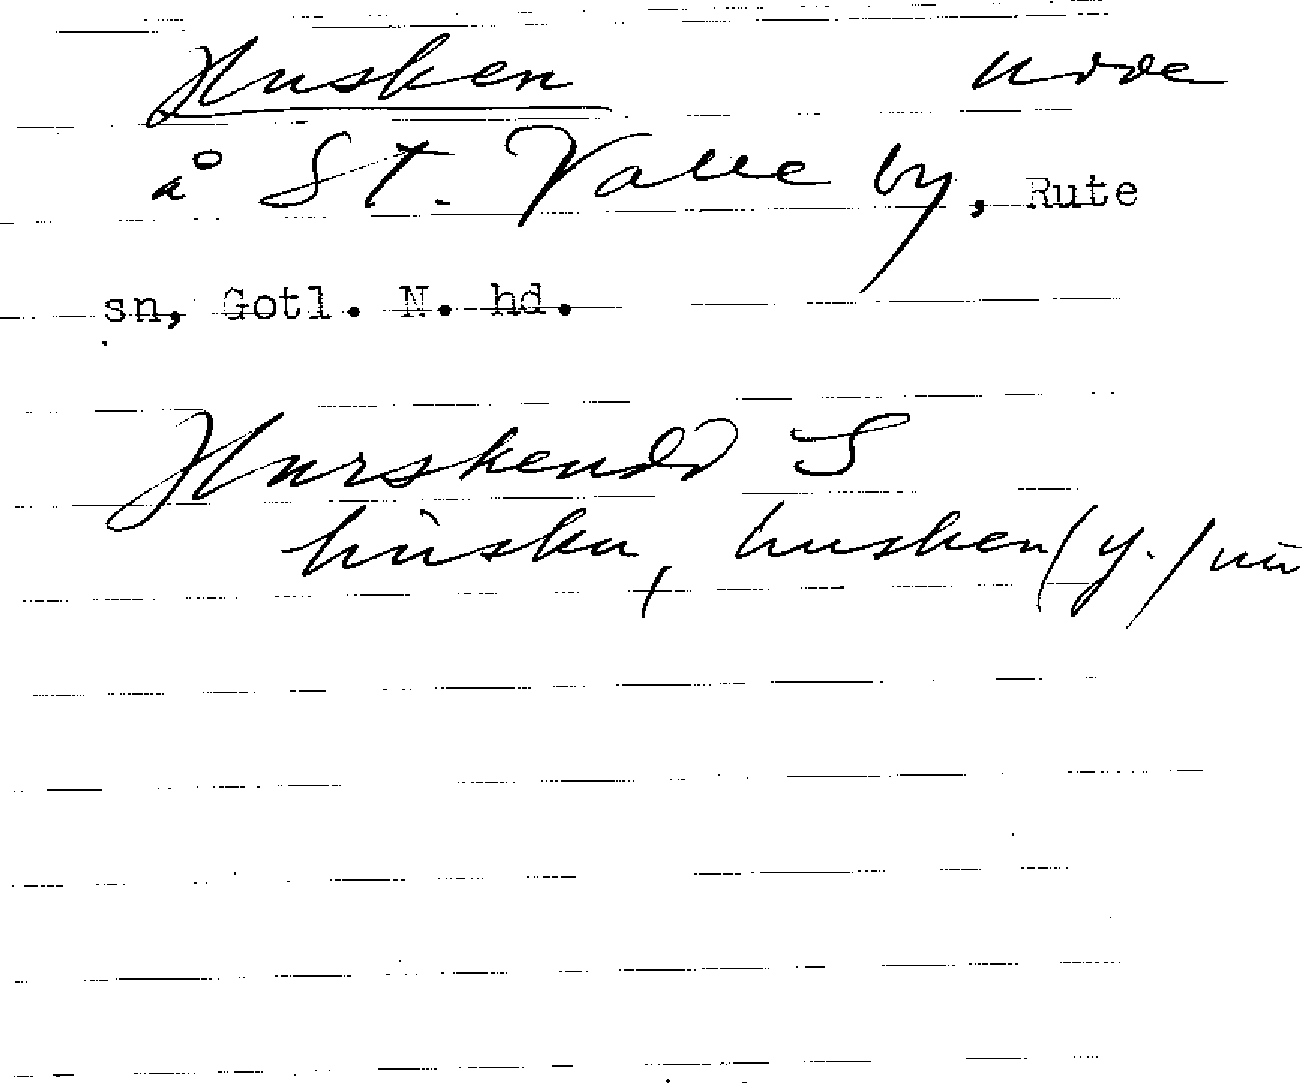 Husken udde
å St. Valle by, Rute
sn, Gotl. N. hd.
Hurskendd S
husken (y.)